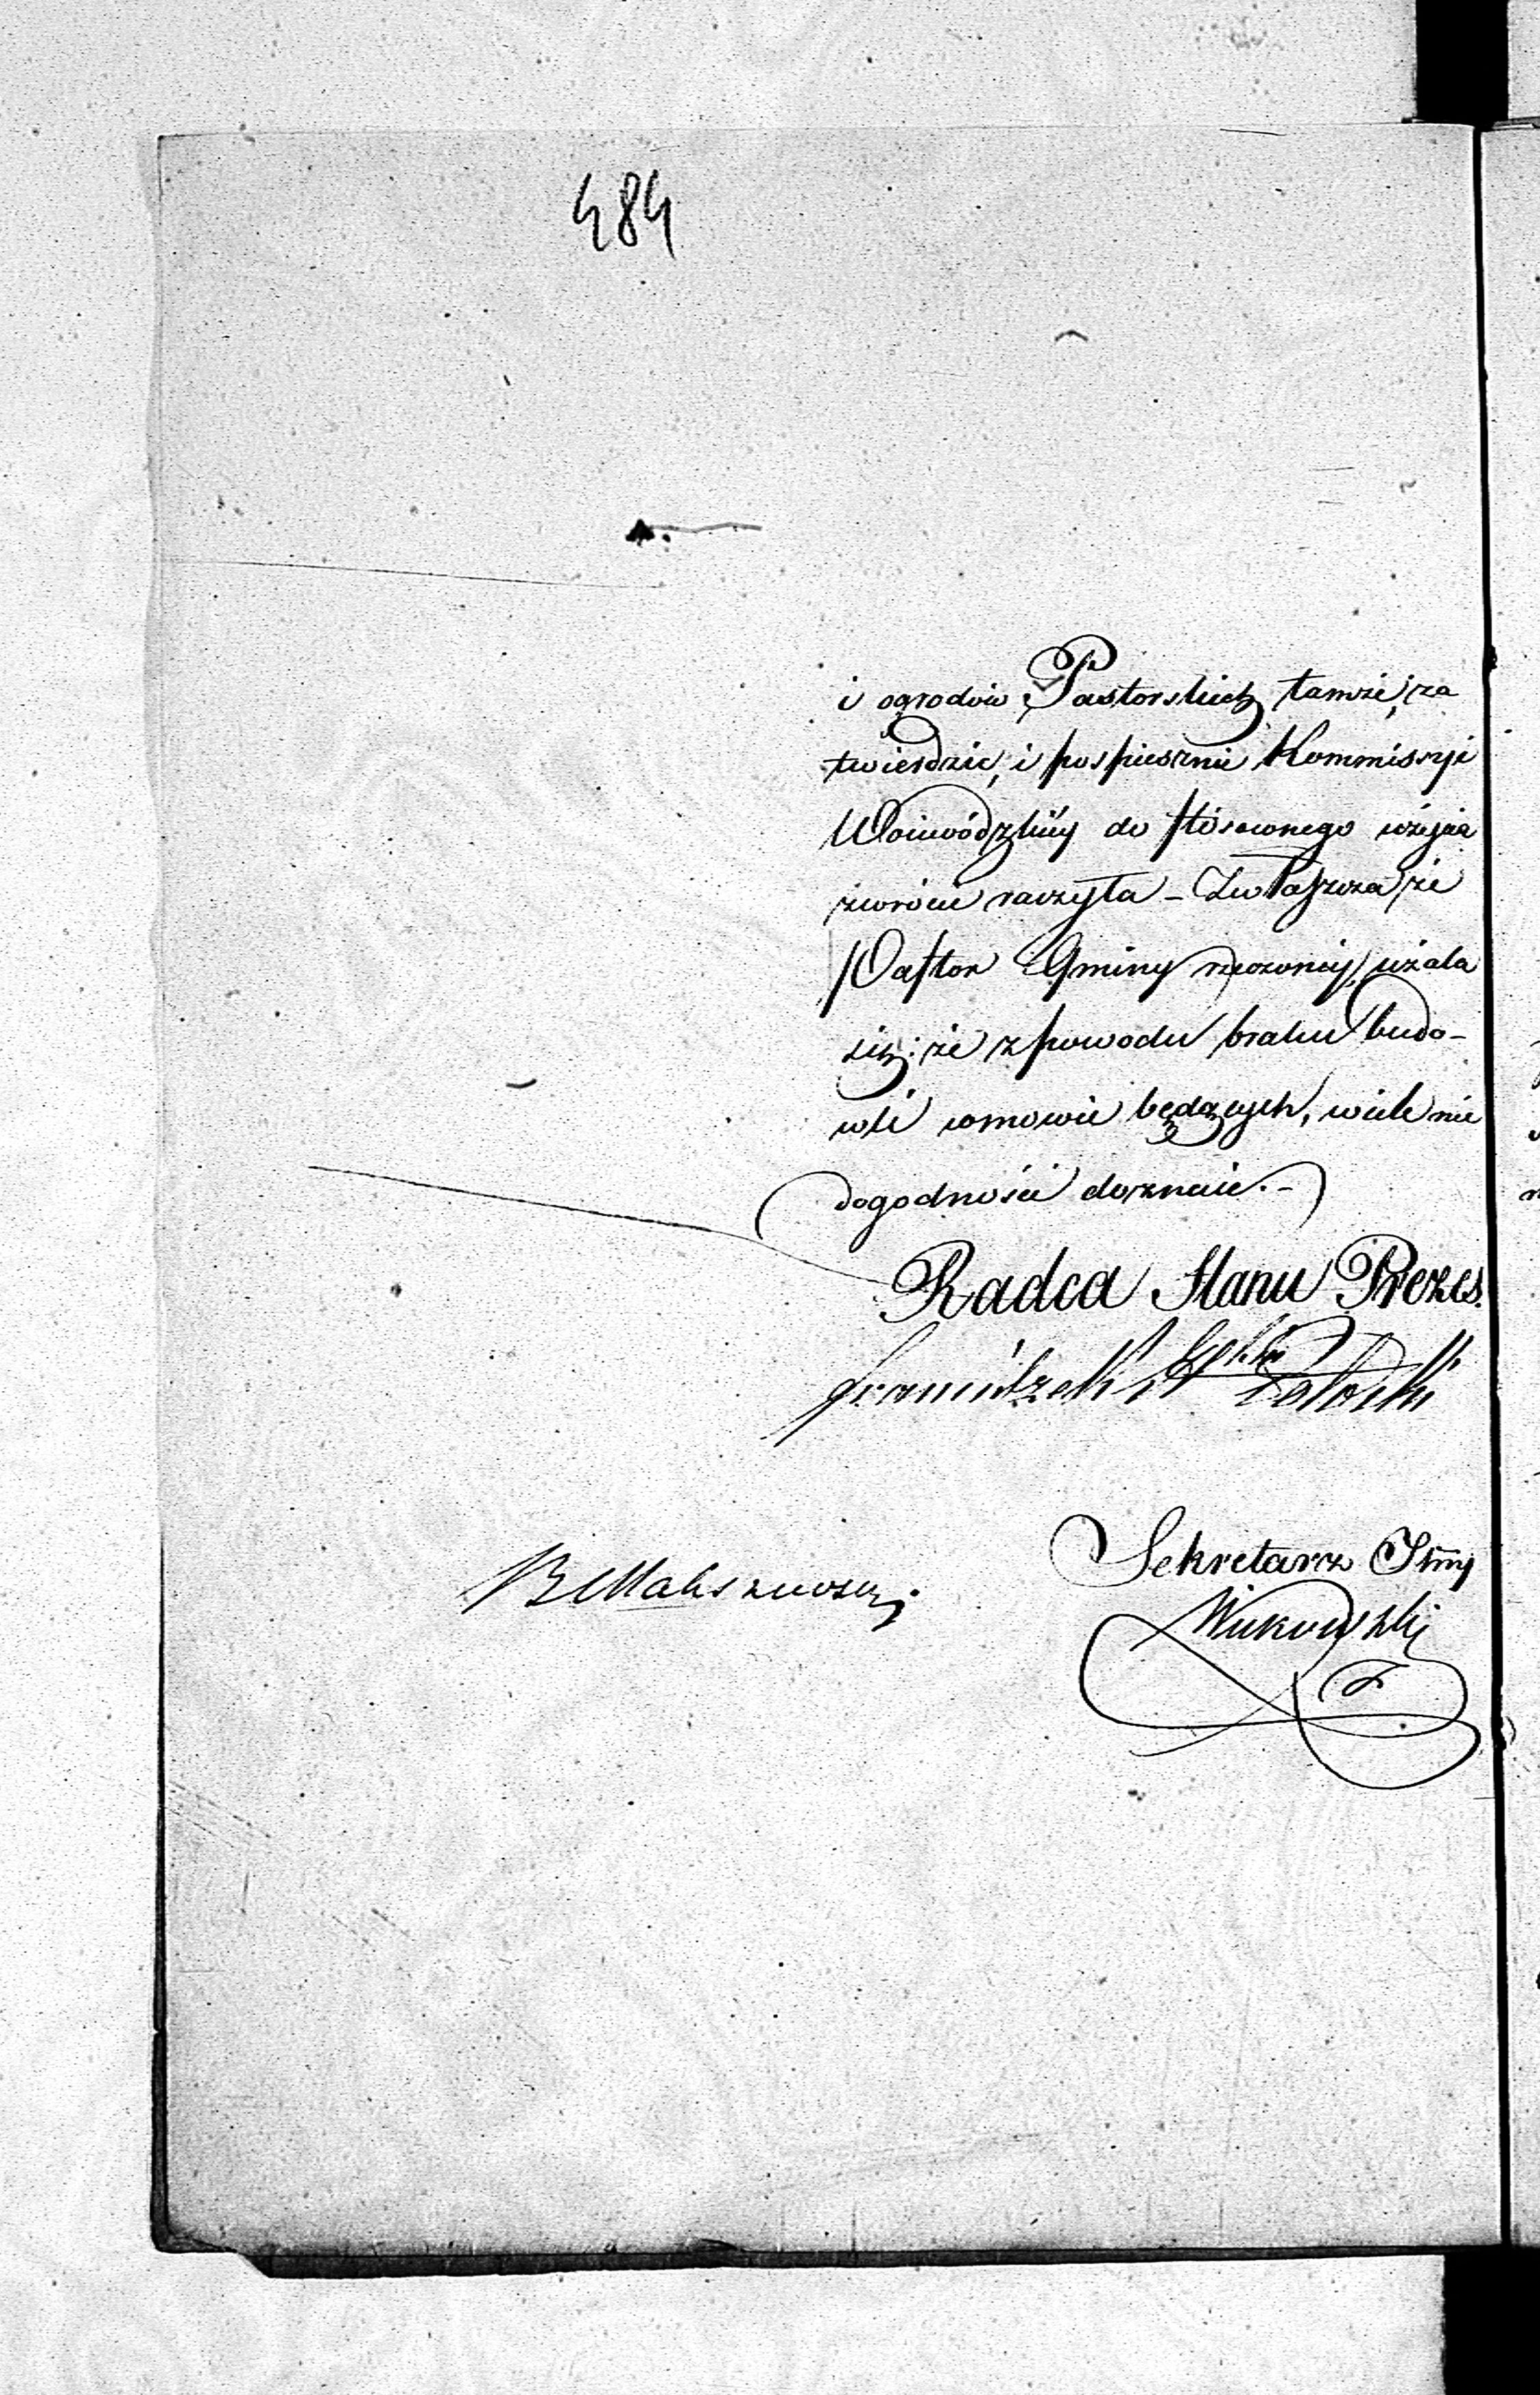 484
i ogrodów Pastorskich tamże, za
twierdzić, i pospiesznie Kommissyi
Woiewódzkiéy do stósownego użycia
zwrócić raczyła – Zwłaszcza, że
Pastor Gminy rzeczonéy, użala
się: że z powodu braku budo-
wli w mowie będących, wiele nie
dogodności doznaie. –
Radca Stanu Prezes.
Franciszek
Sekretarz Jłny